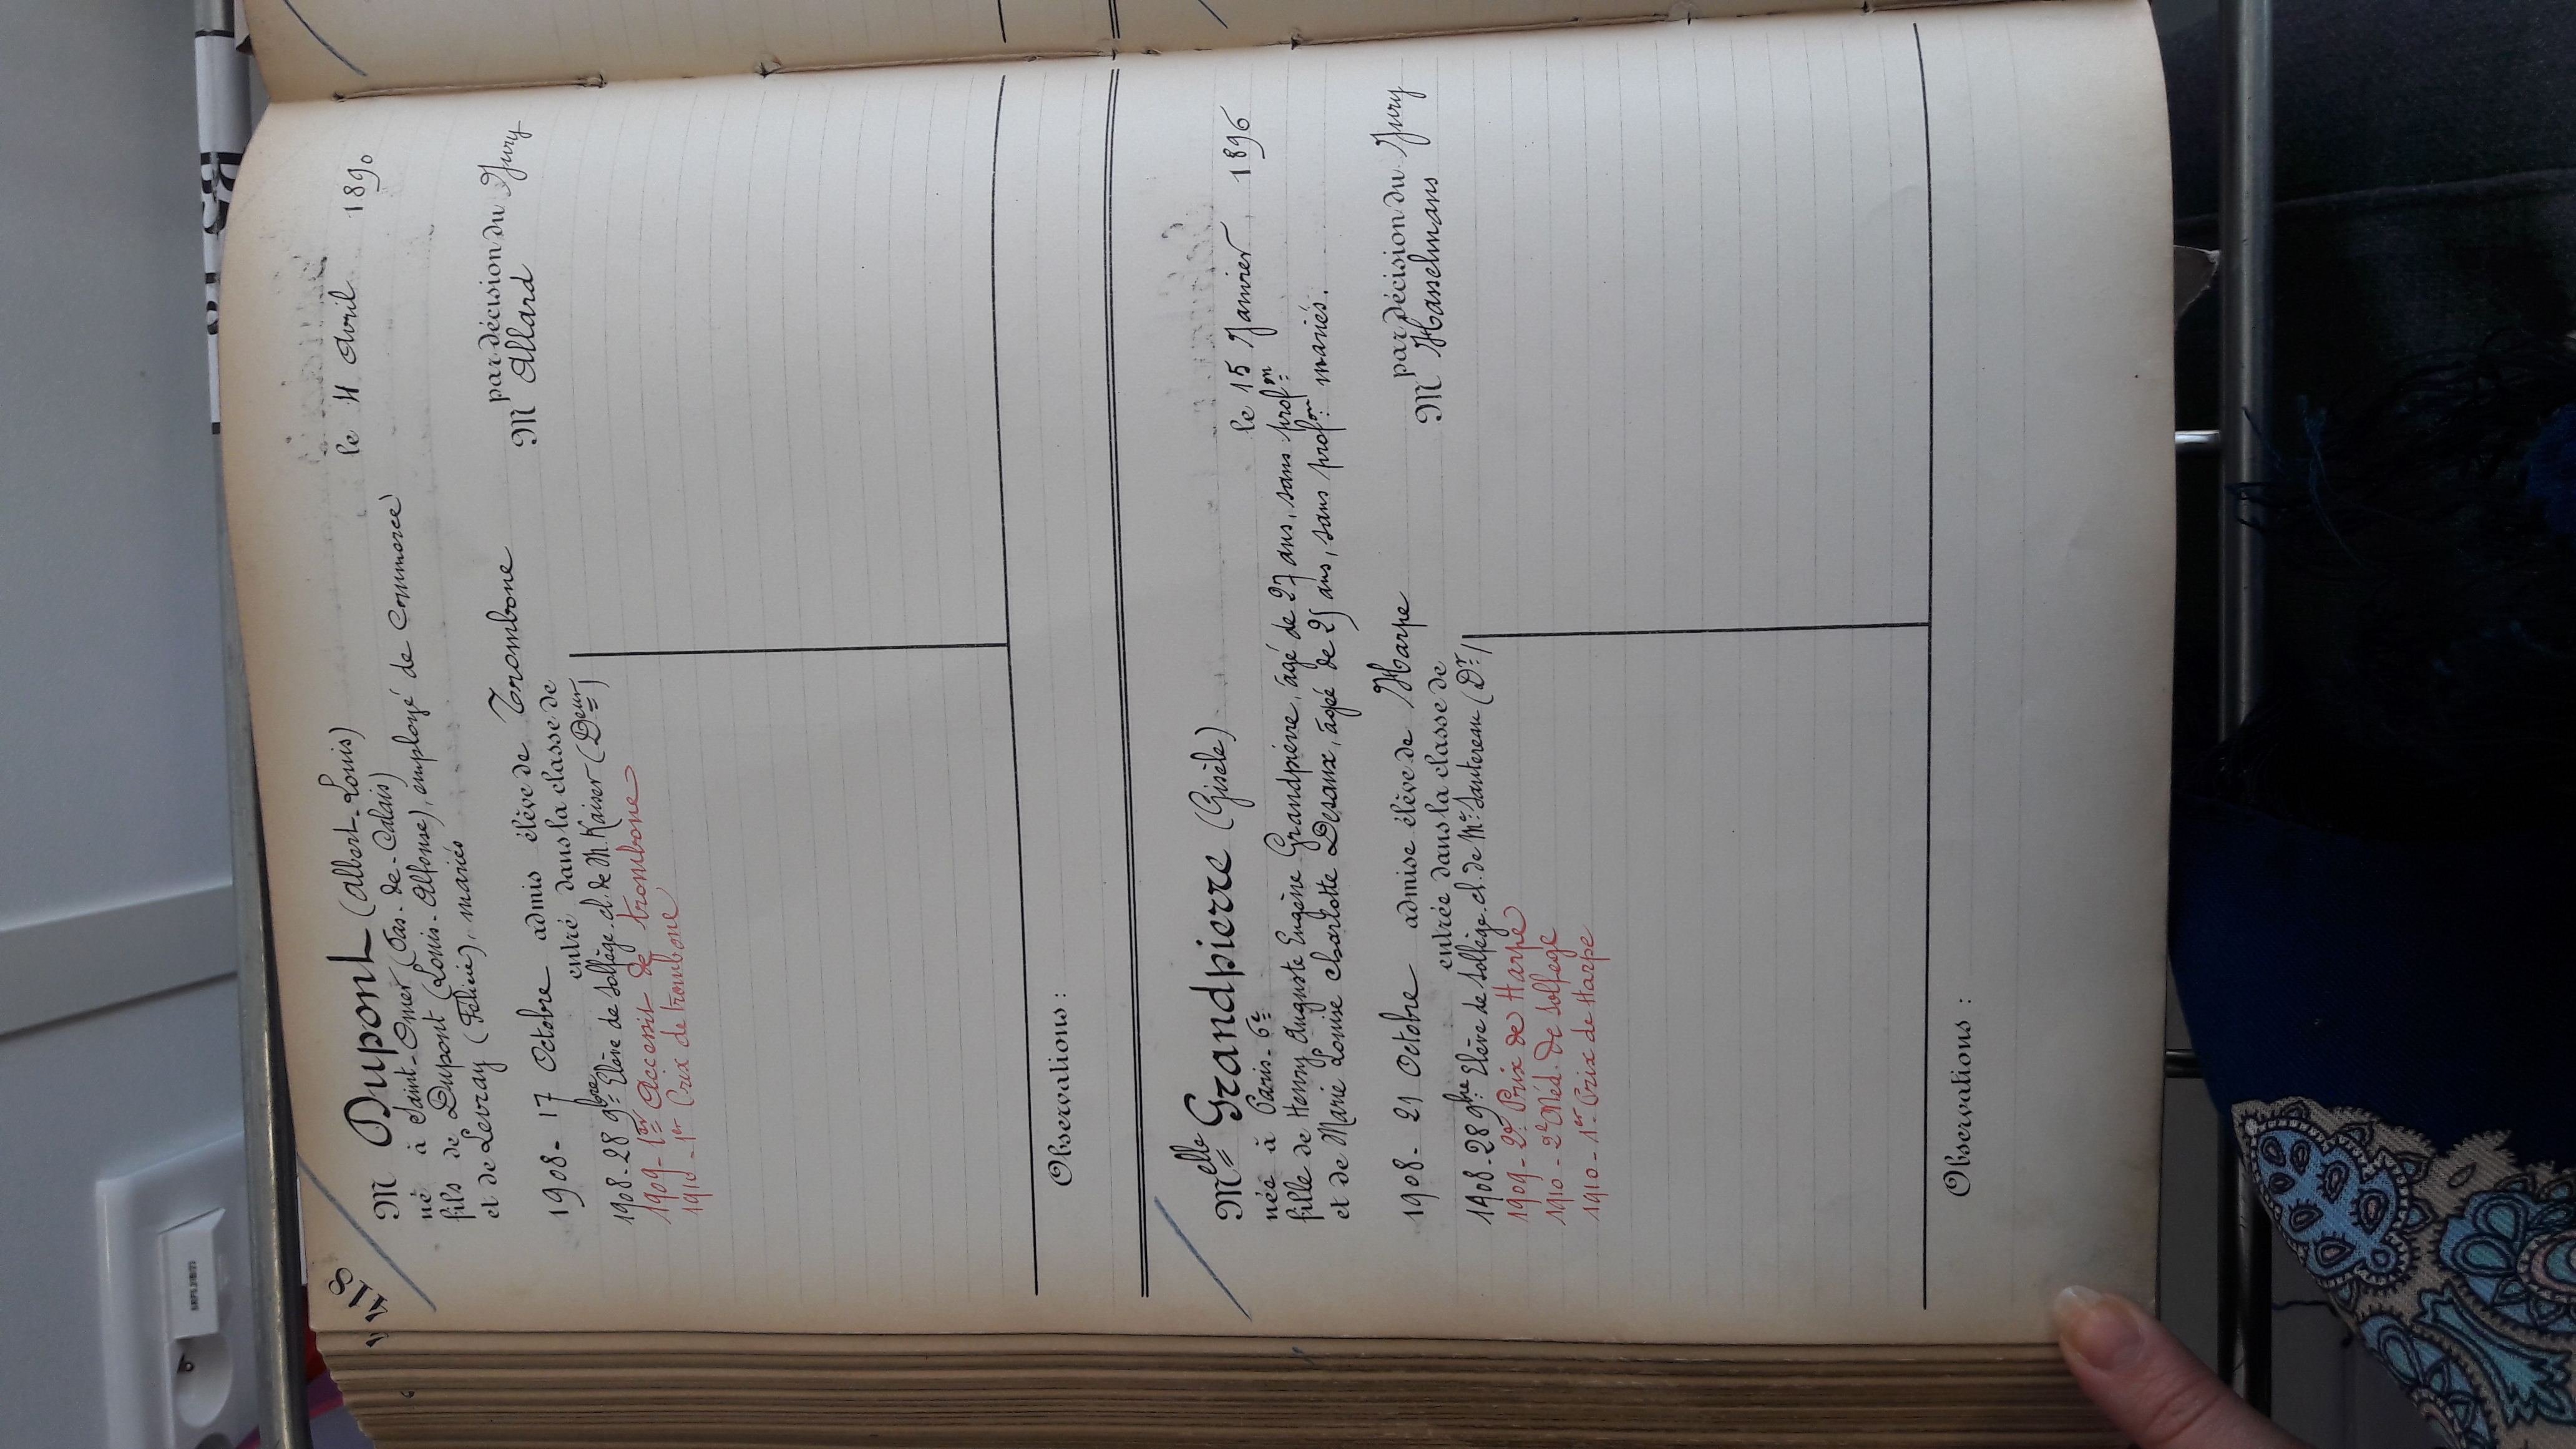 418
M Dupont (Albert-Louis)
né à Saint-Omer (Pas-de-Calais) le 11 Avril 1890
fils de Dupont (Louis-Alfonse), employé de commerce
et de Levray (Félicie), mariés
1908 - 17 Octobre admis élève de Trombone par décision du Jury
entré dans la classe de M Allard
1908 - 28 9bre Elève de solfège cl. de M. Kaiser (Deur)
1909 - 1er Accessit de trombone
1910 - 1er Prix de trombone
Observations :
Melle Grandpierre (Gisèle)
née à Paris - 6e le 15 Janvier 1896
fille de Henry Auguste Eugène Grandpierre, âgé de 27 ans, sans profon
et de Marie Louise Charlotte Desaux, âgée de 25 ans, sans profon mariés.
1908 - 21 Octobre admise élève de Harpe par décision du Jury
entrée dans la classe de M Hasselmans
1908 - 28 9bre Elève de solfège cl. de Me Sautereau (Dr)
1909 - 2e Prix de Harpe
1910 - 2e Méd. de solfège
1910 - 1er Prix de Harpe
Observations :